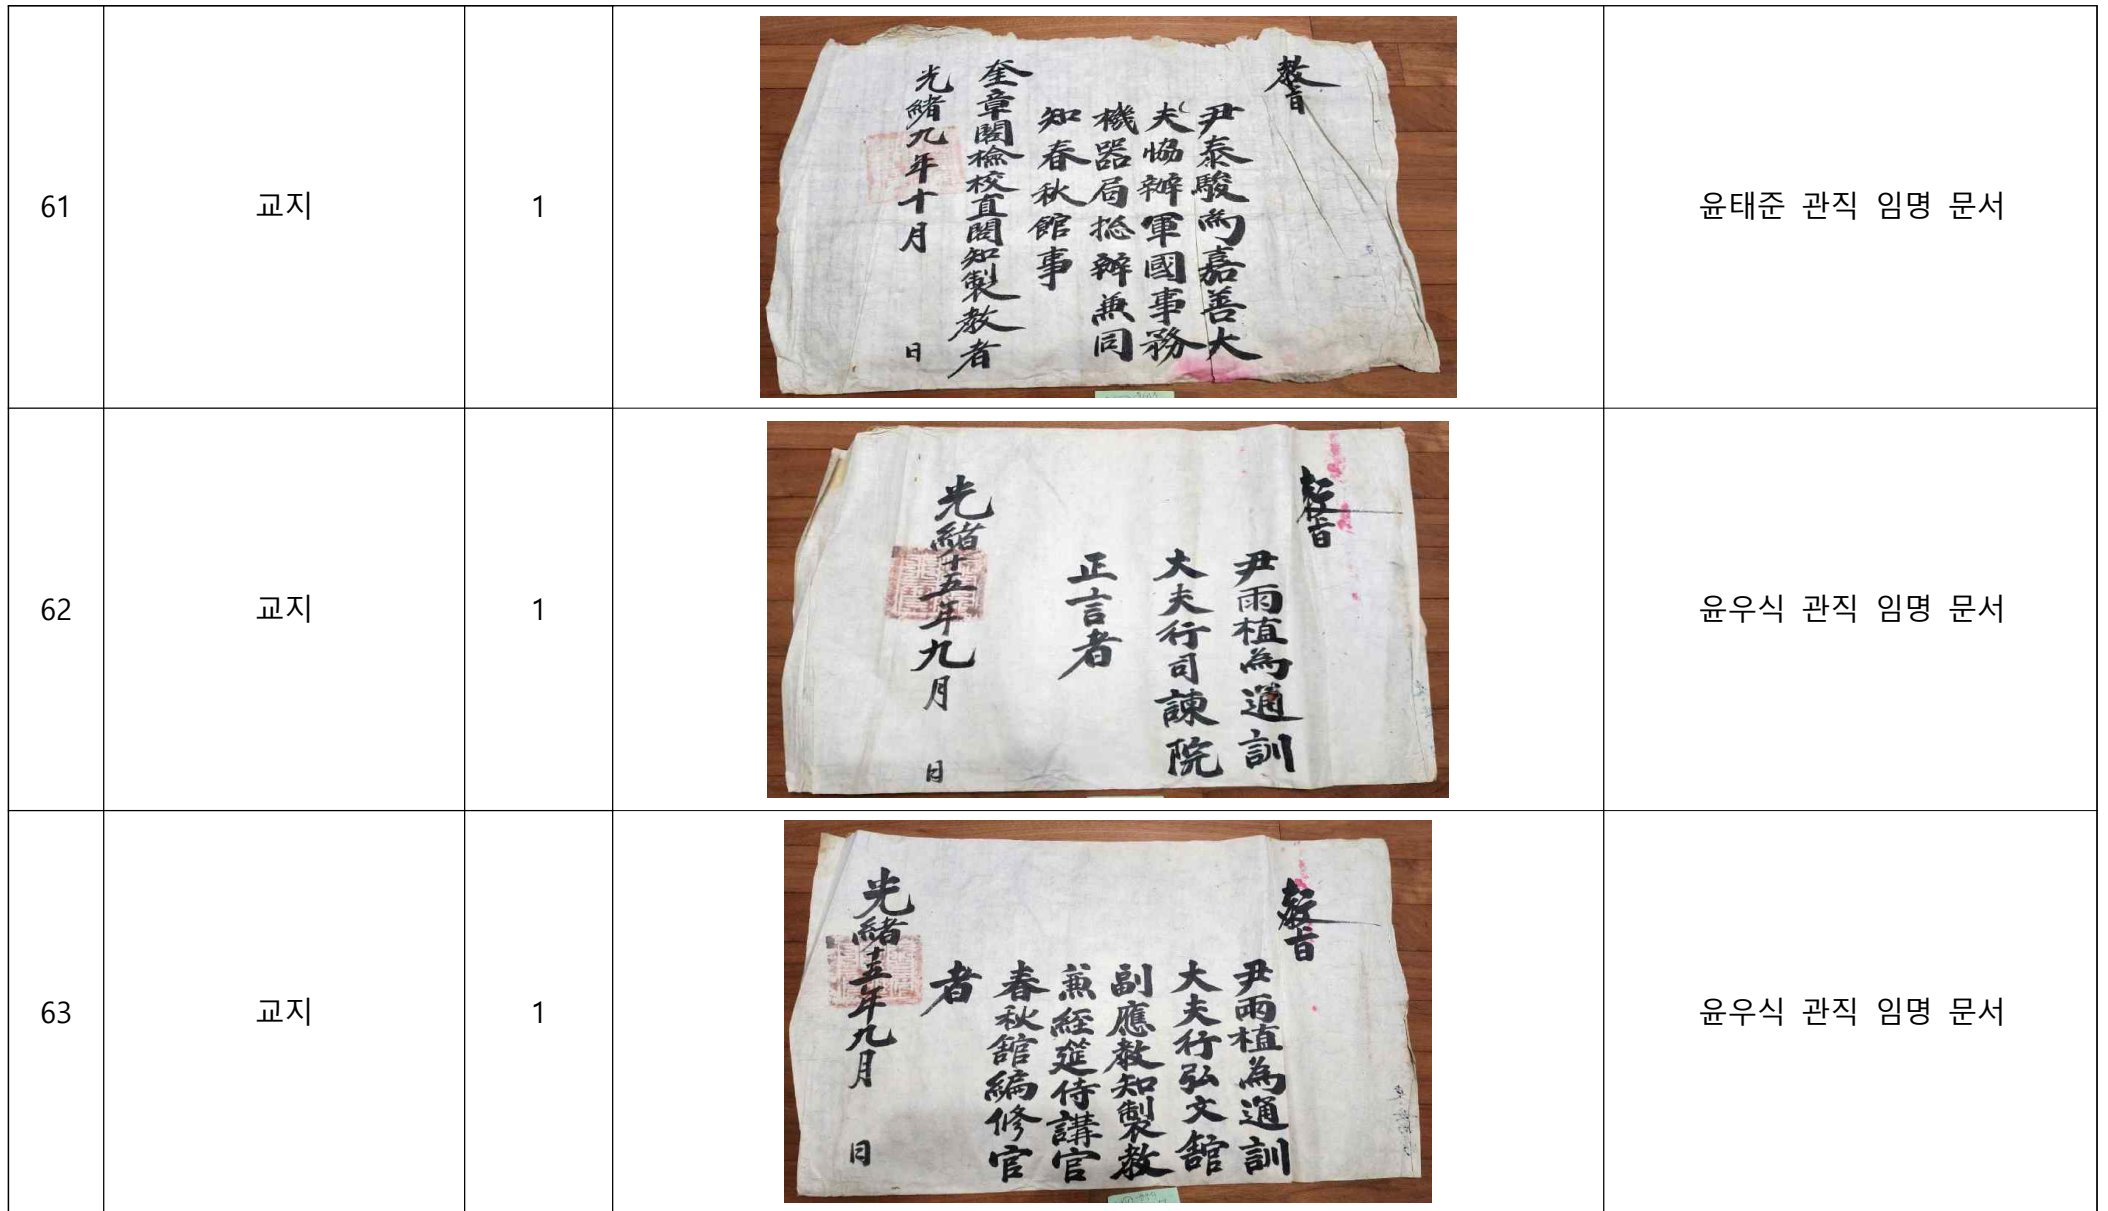 61
교지
1
教旨
尹泰駿爲嘉善大
夫協辦軍國事務
機器局捴辦兼同
知春秋館事
奎章閣檢校直閣知製敎者
光緖九年十月 日
윤태준 관직 임명 문서
62
교지
1
敎旨
尹雨植為通訓
大夫行司諫院
正言者
光緖十五年九月 日
윤우식 관직 임명 문서
63
교지
1
敎旨
尹雨植為通訓
大夫行弘文舘
副應敎知製敎
兼經筵侍講官
春秋舘編修官
者
光緖十五年九月 日
윤우식 관직 임명 문서